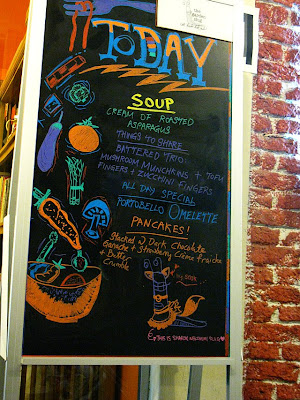 TODAY
SOUP
CREAM OF ROASTED
ASPARAGUS
THINGS TO SHARE
BATTERED TRIO:
MUSHROOM MUNCHKINS + TOFU
FINGERS + ZUCCHINI FINGERS
ALL DAY SPECIAL
PORTOBELLO OMELETTE
PANCAKES!
Stacked W Dark Chocolate
Ganache + Strawberry Crème fraîche
+ Butter
Crumble
THIS IS